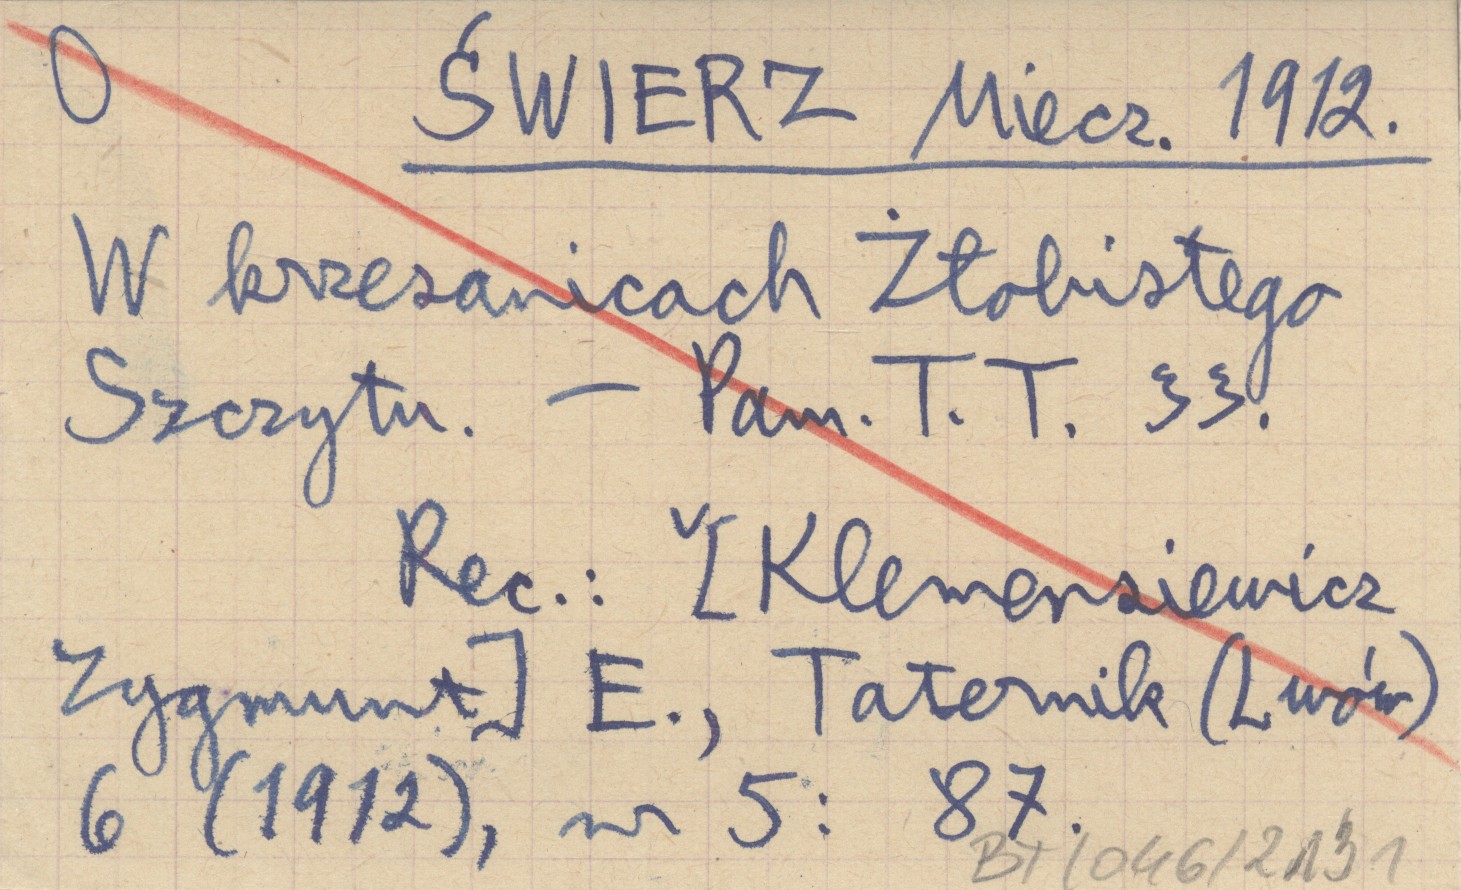 O ŚWIERZ Miecz. 1912.
W krzesanicach Żłobistego
Szczytu. — Pam. T. T. 33.
Rec.: ˅[Klemensiewicz
Zygmunt] E., Taternik (Lwów)
6 (1912), nr 5: 87.
BT/046/2131